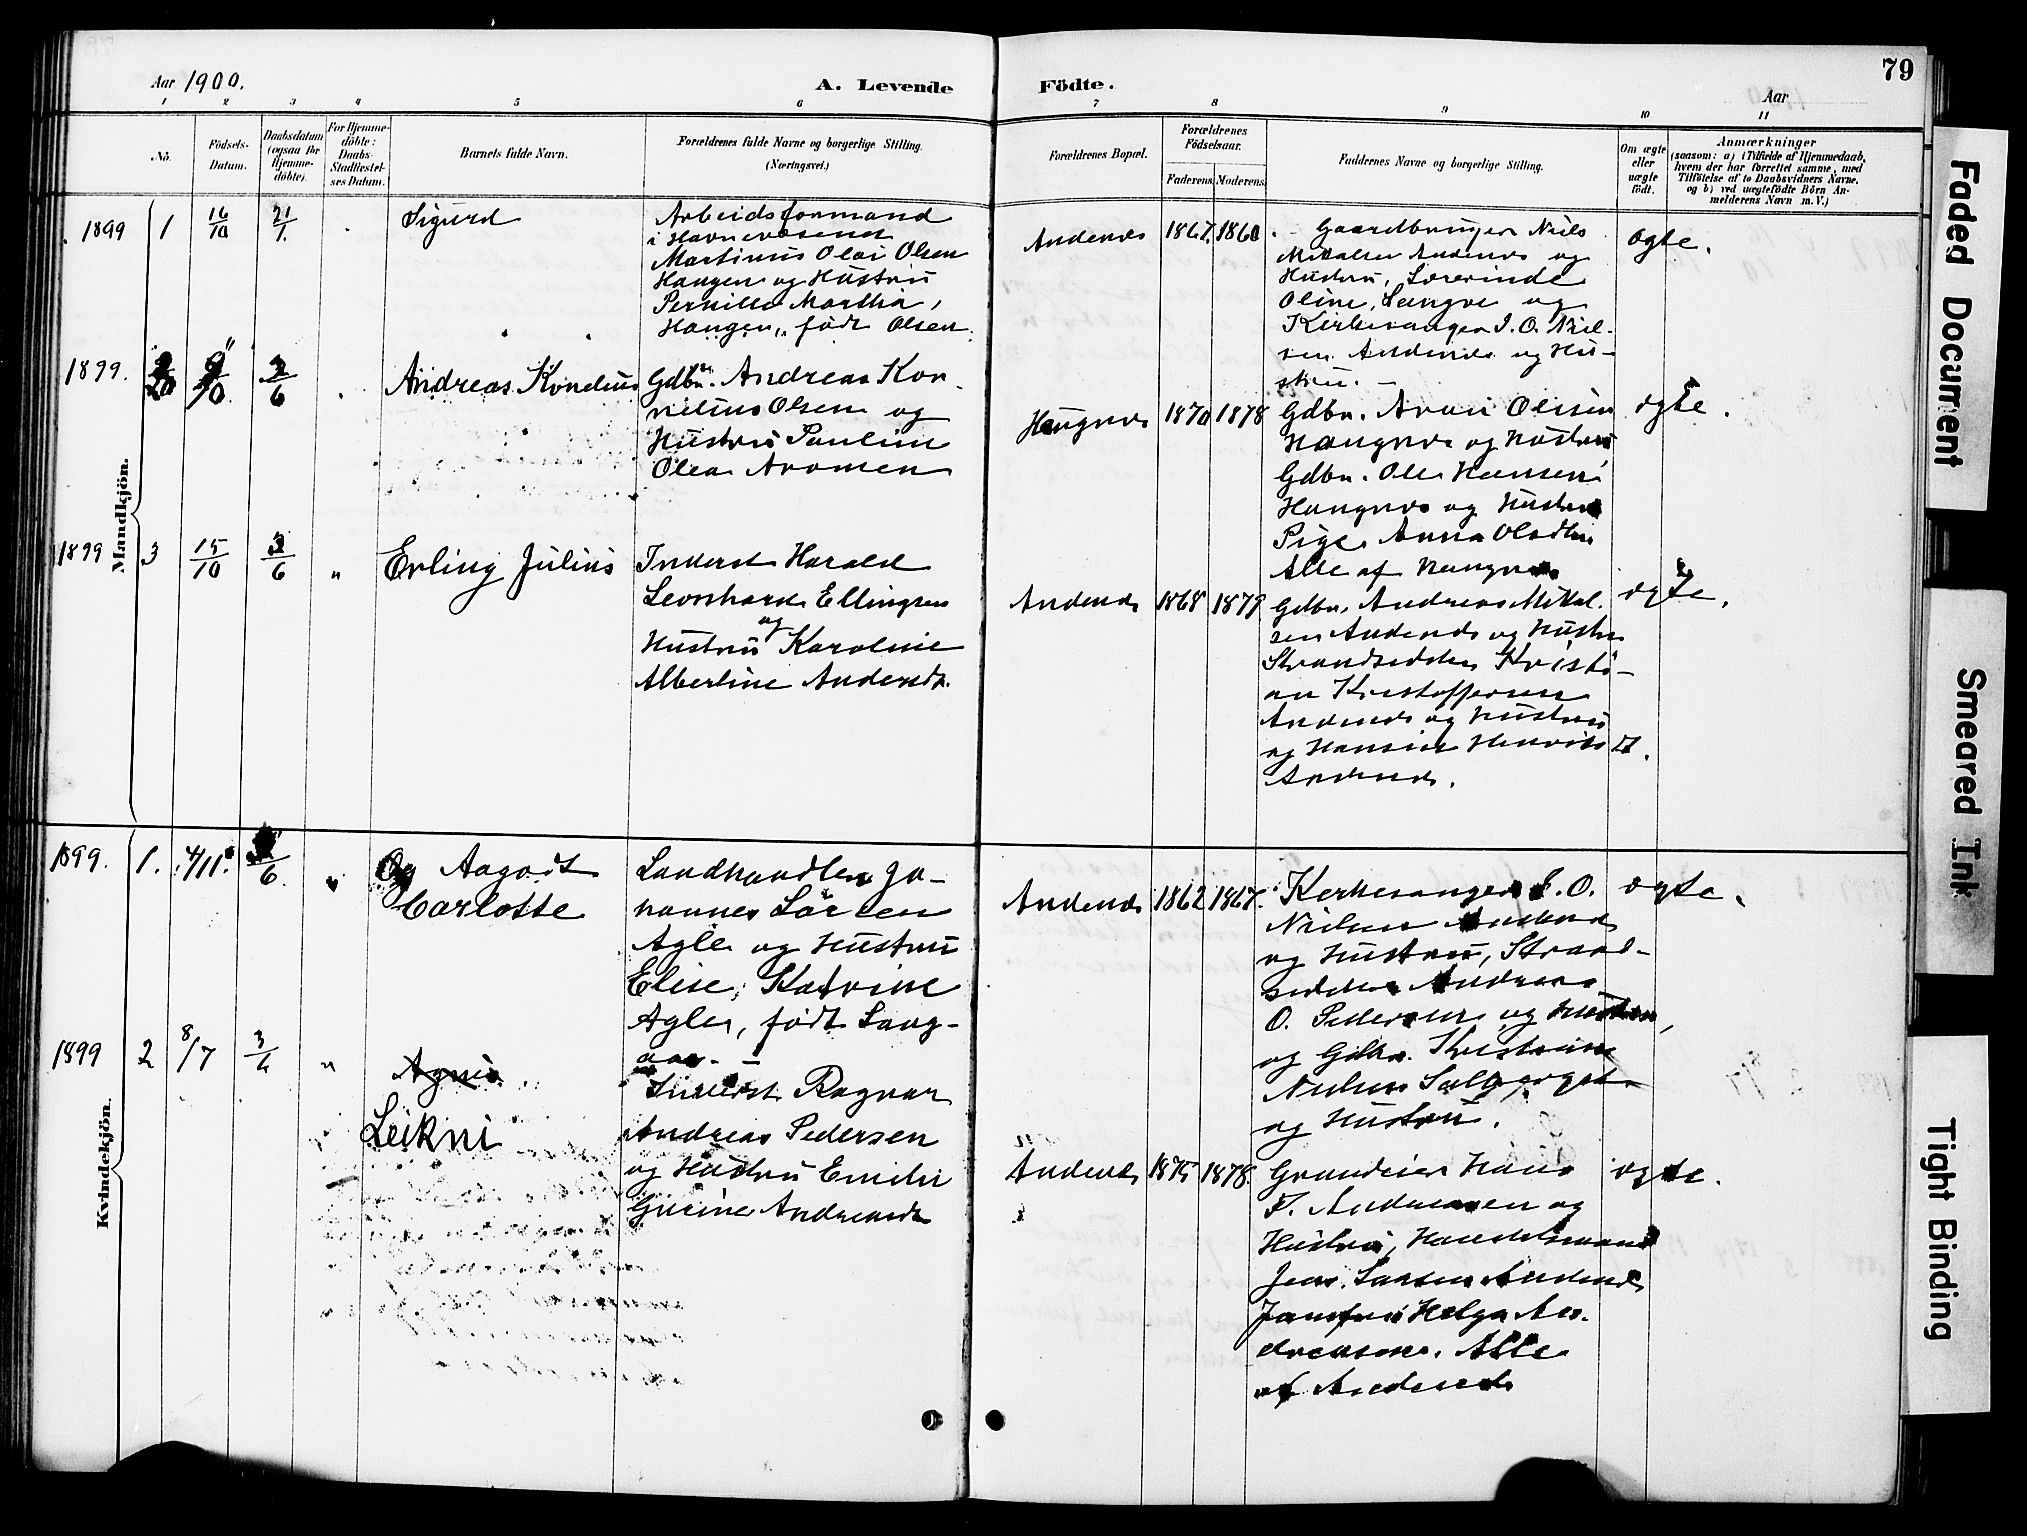 79
Aar 1900.
A. Levende
Födte.
Aar
1 2 3 4 5 6 7 8 9 10 11
No.
Födsels-
Datum.
Daabsdatum
(ogsaa for
Hjemme-
döbte).
For Hjemme-
döbte:
Daabs-
Stadfæstel-
ses Datum.
Barnets fulde Navn.
Forældrenes fulde Navne og borgerlige Stilling.
(Næringsvei.)
Forældrenes Bopæl.
Forældrenes
Födselsaar.
Faderens. Moderens.
Faddernes Navne og borgerlige Stilling.
Om ægte
eller
uægte
födt.
Anmærkninger
(saasom: a) i Tilfælde af Hjemmedaab,
hvem der har forrettet samme, med
Tilföielse af to Daabsvidners Navne,
og b) ved uægtefödte Börn An-
melderens Navn m. V.)
Mandkjön.
1899 1 16/10 21/1 Sigurd
Arbeidsformand
i Havnevæsenet
Martinus Olai Olsen
Haugen og Hustru
Pernille Martha
Haugen, født Olsen.
Andenes 1867. 1860
Gaardbruger Niels
Mikalsen Andenes og
Hustru, Lærerinde
Oline Langve og
Kirkesanger I. O. Niel-
sen Andenes og Hu-
stru.
ægte.
1899. 9/10 3/6 Andreas Konelius
Gdbr. Andreas Kor-
nelius Olsen og
Hustru Pauline
Olea Aronsen
Haugnes 1870 1878
Gdbr. Aron Olsen
Haugnes og Hustru
Gdbr. Ole Hansen
Haugnes og Hustru
Pige Anna
Alle af Haugnes
ægte.
1899 3 15/10 3/6 " Erling Julius
Inderst Harald
Leonhard Ellingsen
og
Hustru Karoline
Albertine Andenes.
Andenes 1868 1879
Gdbr. Andreas Mikal-
sen Andenes og Hustru
Strandsidder Kristi-
an Kristoffersen
Andenes og Hustru
og Hansine
Andenes.
ægte.
Kvindekjön.
1899. 1. 4/11. /6 " Aagodt
Carlotte
Landhandler Jo-
hannes Larsen
Agle og Hustru
Elise Katrine
Agle, født Laug-
aas.
Andenes 1862 1867.
Kirkesanger I. O.
Nielsen Andenes
og Hustru, Strand-
sidder Andreas
O. Pedersen og Hustru,
og Gdbr. Kristian
Nielsen
og Hustru.
ægte.
1899 2 8/7 3/6 " Agnes
Leikni
Inderst Ragvar
Andreas Pedersen
og Hustru Emilie
Gurine Andenes
Andenes 1875 1878.
Grundeier Hans
F. Andreassen og
Hustru, Handelsmand
Jens Larsen Andenes
Jomfru Helga An-
dreassen. Alle
af Andenes
ægte.
Faded Document
Smeared Ink
Tight Binding